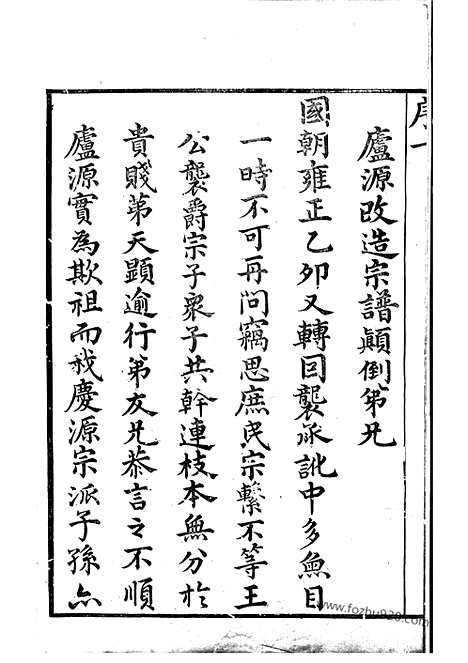 序一
廬源改造宗譜顛倒第兄
國朝雍正乙卯又轉回襲承訛中多魚目
一時不可再问竊思庶民宗繫不等王
公襲爵宗子衆子共幹連枝本無分於
貴賤第天顯逾行第友兄恭言之不順
廬源實為欺祖而我慶源宗派子孫亦
www.fozhu920.com